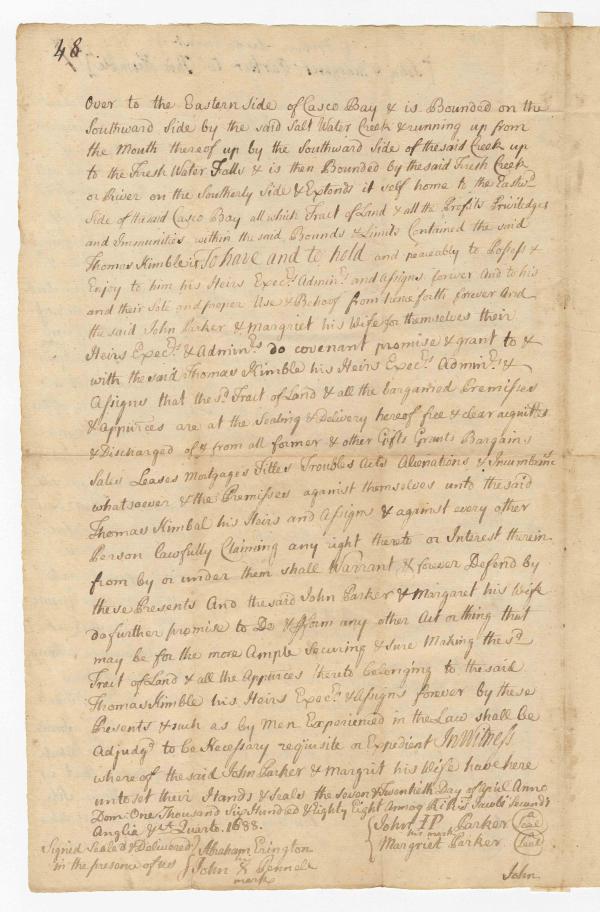 48
Over to the Eastern Side of Casco Bay & is Bounded on the
Southward Side by the said Salt Water Creek & running up from
the Mouth thereof up by the Southward Side of the said Creek up
to the Fresh Water Falls & is then Bounded by the said Fresh Creek
or River on the Southerly Side & Extends it self home to the Eastwd
Side of the said Casco Bay all which Tract of Land & all the Profits Priviledges
and Immunities within the said Bounds & Limits Contained the said
Thomas Kimble is To have and to hold and peaceably to Possess &
Enjoy to him his Heirs Execrs. Adminrs and Assigns forever And to his
and their Sole and proper Use & Behoof from henceforth forever And
the said John Parker & Margriet his Wife for themselves their
Heirs Execrs. & Adminrs do covenant promise & grant to &
with the said Thomas Kimble his Heirs Execrs. Adminrs. &
Assigns that the sd. Tract of Land & all the bargained Premisses
& Appurces are at the Sealing & Delivery hereof free & clear acquitted
& Discharged of & from all former & other Gifts Grants Bargains
Sales Leases Mortgages Titles Troubles Acts Alienations & Incumbrances
whatsoever & the Premisses against themselves unto the said
Thomas Kimbal his Heirs and Assigns & against every other
Person lawfully Claiming any right thereto or Interest therein
from by or under them shall Warrant & forever Defend by
these Presents And the said John Parker & Margaret his Wife
do further promise to Do & pform any other Act or thing that
may be for the more Ample Securing & Sure Making the sd.
Tract of Land & all the Appurces thereto belonging to the said
Thomas Kimble his Heirs Execrs. & Assigns forever by these
Presents & such as by Men Experienced in the Law shall be
Adjudgd to be Necessary requisite or Expedient In Witness
whereof the said John Parker & Margrit his Wife have here
unto set their Hands & Seals the Seven & Twentieth Day of April Anno
Dom: One Thousand Six Hundred & Eighty Eight Annoq RiRis Jacobi Secundi
Anglia &ct Quarto. 1688.
John IP Parker Seal
his mark
Margriet Parker Seal
Signed Sealed & Delivered
in the presence of us
Abraham Erington
John X Pennell
mark
John